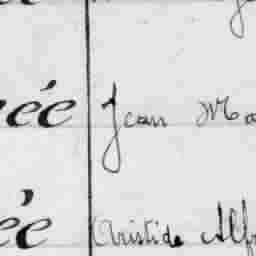 ée Jean Ma
ée Aristide Alf